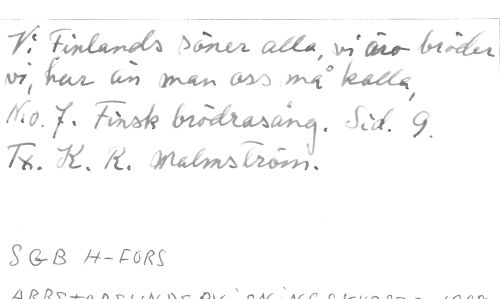 Vi Finlands söner alla, vi äro bröder
vi, hur än man oss må kalla,
No. 7. Finsk brödrasång. Sid. 9.
Tx. K. R. Malmström.
SGB H-FORS